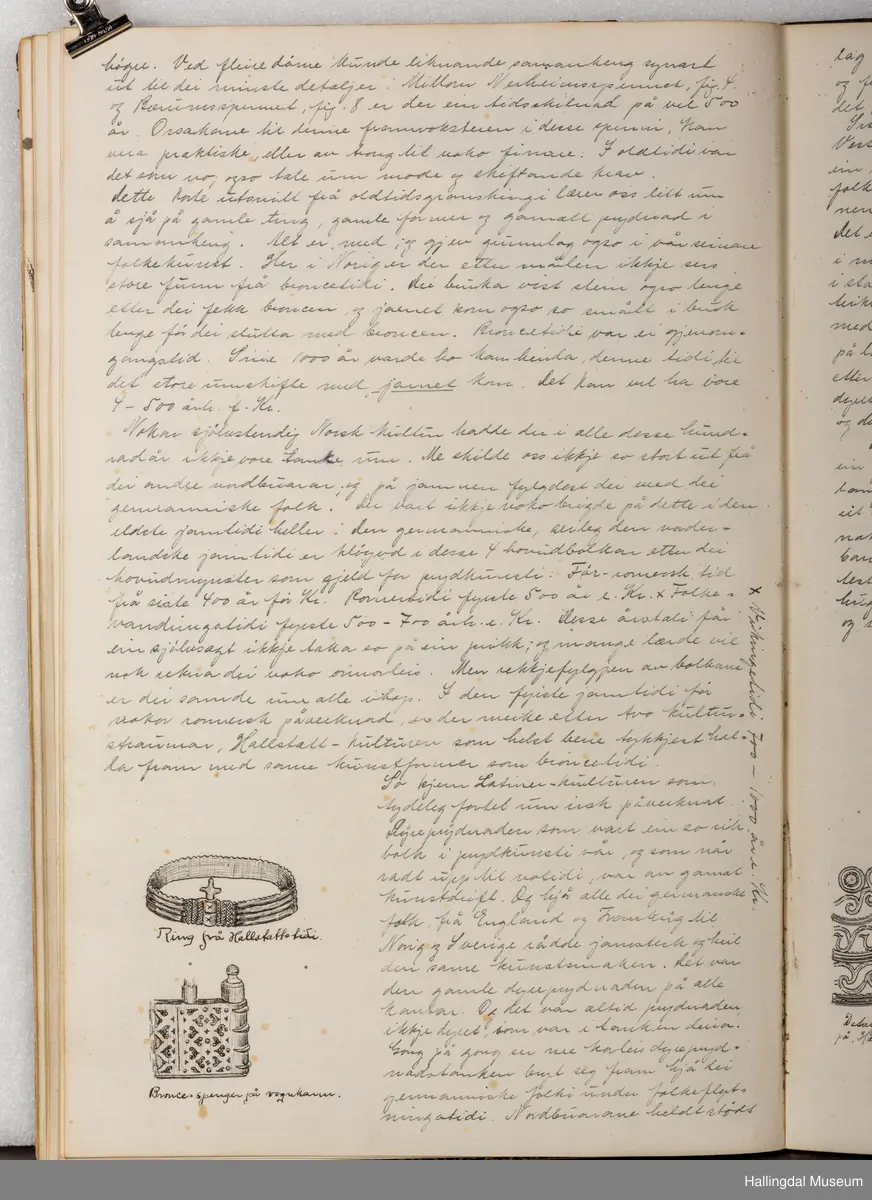 bøgu. Ved fleire døme kunde liknande samanheng synast
ut til dei minste detaljer. Millom Nerheimsspennet, fig. 4.
og Bærumsspennet, fig. 8 er der ein tidsskilnad på vel 500
år. Orsakane til denne framvoksteren i desse spenni, kan
vera praktiske, eller av trong til noko finare. I oldtidi var
det som no, ogso tale um mode og skiftande krav.
Dette korte utsnitt frå oldtidsgranskingi lærer oss litt um
å sjå på gamle ting, gamle former og gamall prydnad i
samanheng. Alt er med, og gjev grunnlag ogso i vår seinare
folkekunst. Her i Norig er der etter måten ikkje sers
store funn frå broncetidi. Dei bruka visst stein ogso lenge
etter dei fekk broncen, og jarnet kom ogso so smått i bruk
lenge før dei slutta med broncen. Broncetidi var ei gjenom-
gangstid. Sine 1000 år varde ho kanhenda, denne tidi til
det store umskifte med jarnet kom. Det kan vel ha vore
4-500 årh. f. Kr.
Nokon sjølvstendig Norsk kultur hadde der i alle desse hund-
radår ikkje vore tanke um. Me skilde oss ikkje so stort ut frå
dei andre nordbuarar, og på jamnen fylgdest dei med dei
germanniske folk. Der vart ikkje noko brigde på dette i den
eldste jarntidi heller. Den germanniske, serleg den norder-
landske jarntidi er kløyvd i desse 4 hovudbolkar etter dei
hovudmynster som gjeld for prydkunsti: Før-romersk tid
frå siste 400 år før Kr. Romertidi fyrste 500 år e. Kr. x Folke-
vandringstidi fyrste 500-700 årh. e. Kr. Desse årstali får
ein sjølvsagt ikkje taka so på ein prikk; og mange lærde vil
nok rekna dei noko onnorleis. Men rekkjefylgjen av bolkane
er dei samde um alle ihop. I den fyrste jarntidi før
nokor romersk påverknad, er der merke etter tvo kultur-
straumar, Hallstatt-kulturen som helst bene tykkjest hal-
da fram med same kunstformer som broncetidi.
So kjem Latiner-kulturen som
tydeleg fortel um irsk påverknad.
Dyreprydnaden som vart ein so rik
bolk i prydkunsti vår, og som når
radt upp til notidi, var av gamal
kunstdrift. Og hjå alle dei germanske
folk, frå England og Frankrig til
Norig og Sverige rådde jamsterk og heil
den same kunstsmaken. Det var
den gamle dyreprydnaden på alle
kantar. Og det var altid prydnaden,
ikkje dyret, som var i tanken deira.
Gong på gong ser me korleis dyrepryd-
nadstanken bryt seg fram hjå dei
germanniske folki under folkeflyt-
ningstidi. Nordbuarane heldt stødt
x Vikingetidi 700 - 1000 år e. Kr.
Ring frå Hallstattstidi.
Bronce-spenger på vognkarm.
Hallingdal Museum